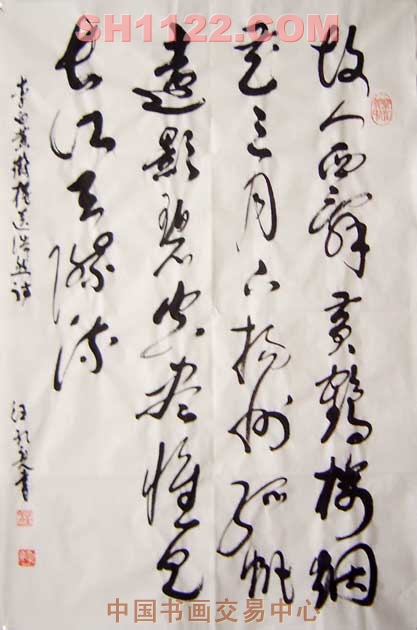 SH1122.COM
故人西辞黄鹤楼烟
花三月下扬州孤帆
遠影碧空尽惟见
长江天际流
李白黄鹤楼送浩然诗
汪书
中国书画交易中心